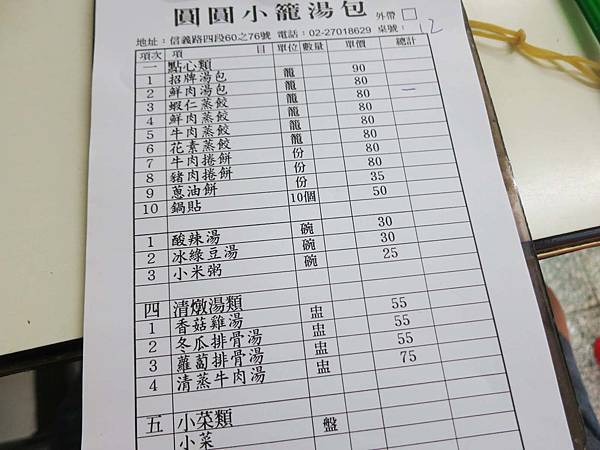 圓圓小籠湯包 外帶
地址：信義路四段60之76號 電話：02-27018629 桌號： 12
項次 項 目 單位 數量 單價 總計
一 點心類
1 招牌湯包 籠 90
2 鮮肉湯包 籠 80 一
3 蝦仁蒸餃 籠 80
4 鮮肉蒸餃 籠 80
5 牛肉蒸餃 籠 80
6 花素蒸餃 籠 80
7 牛肉捲餅 份 80
8 豬肉捲餅 份 80
9 蔥油餅 份 35
10 鍋貼 10個 50
1 酸辣湯 碗 30
2 冰綠豆湯 碗 30
3 小米粥 碗 25
四 清燉湯類
1 香菇雞湯 盅 55
2 冬瓜排骨湯 盅 55
3 蘿蔔排骨湯 盅 55
4 清蒸牛肉湯 盅 75
五 小菜類
小菜 盤